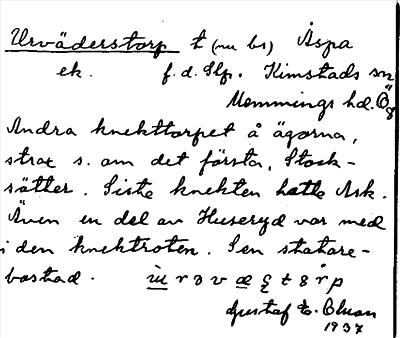 Urväderstorp t (nu bs) Åspa
ek. f.d. Slp. Kimstads sn
Memmings hd. Ög
Andra knekttorpet å ägorna,
strax s. om det första, Stock-
sätter. Siste knekten hette Ask.
Även en del av Huseryd var med
i den knektroten. Sen statare-
bostad.
Gustaf E. Bluan
1937